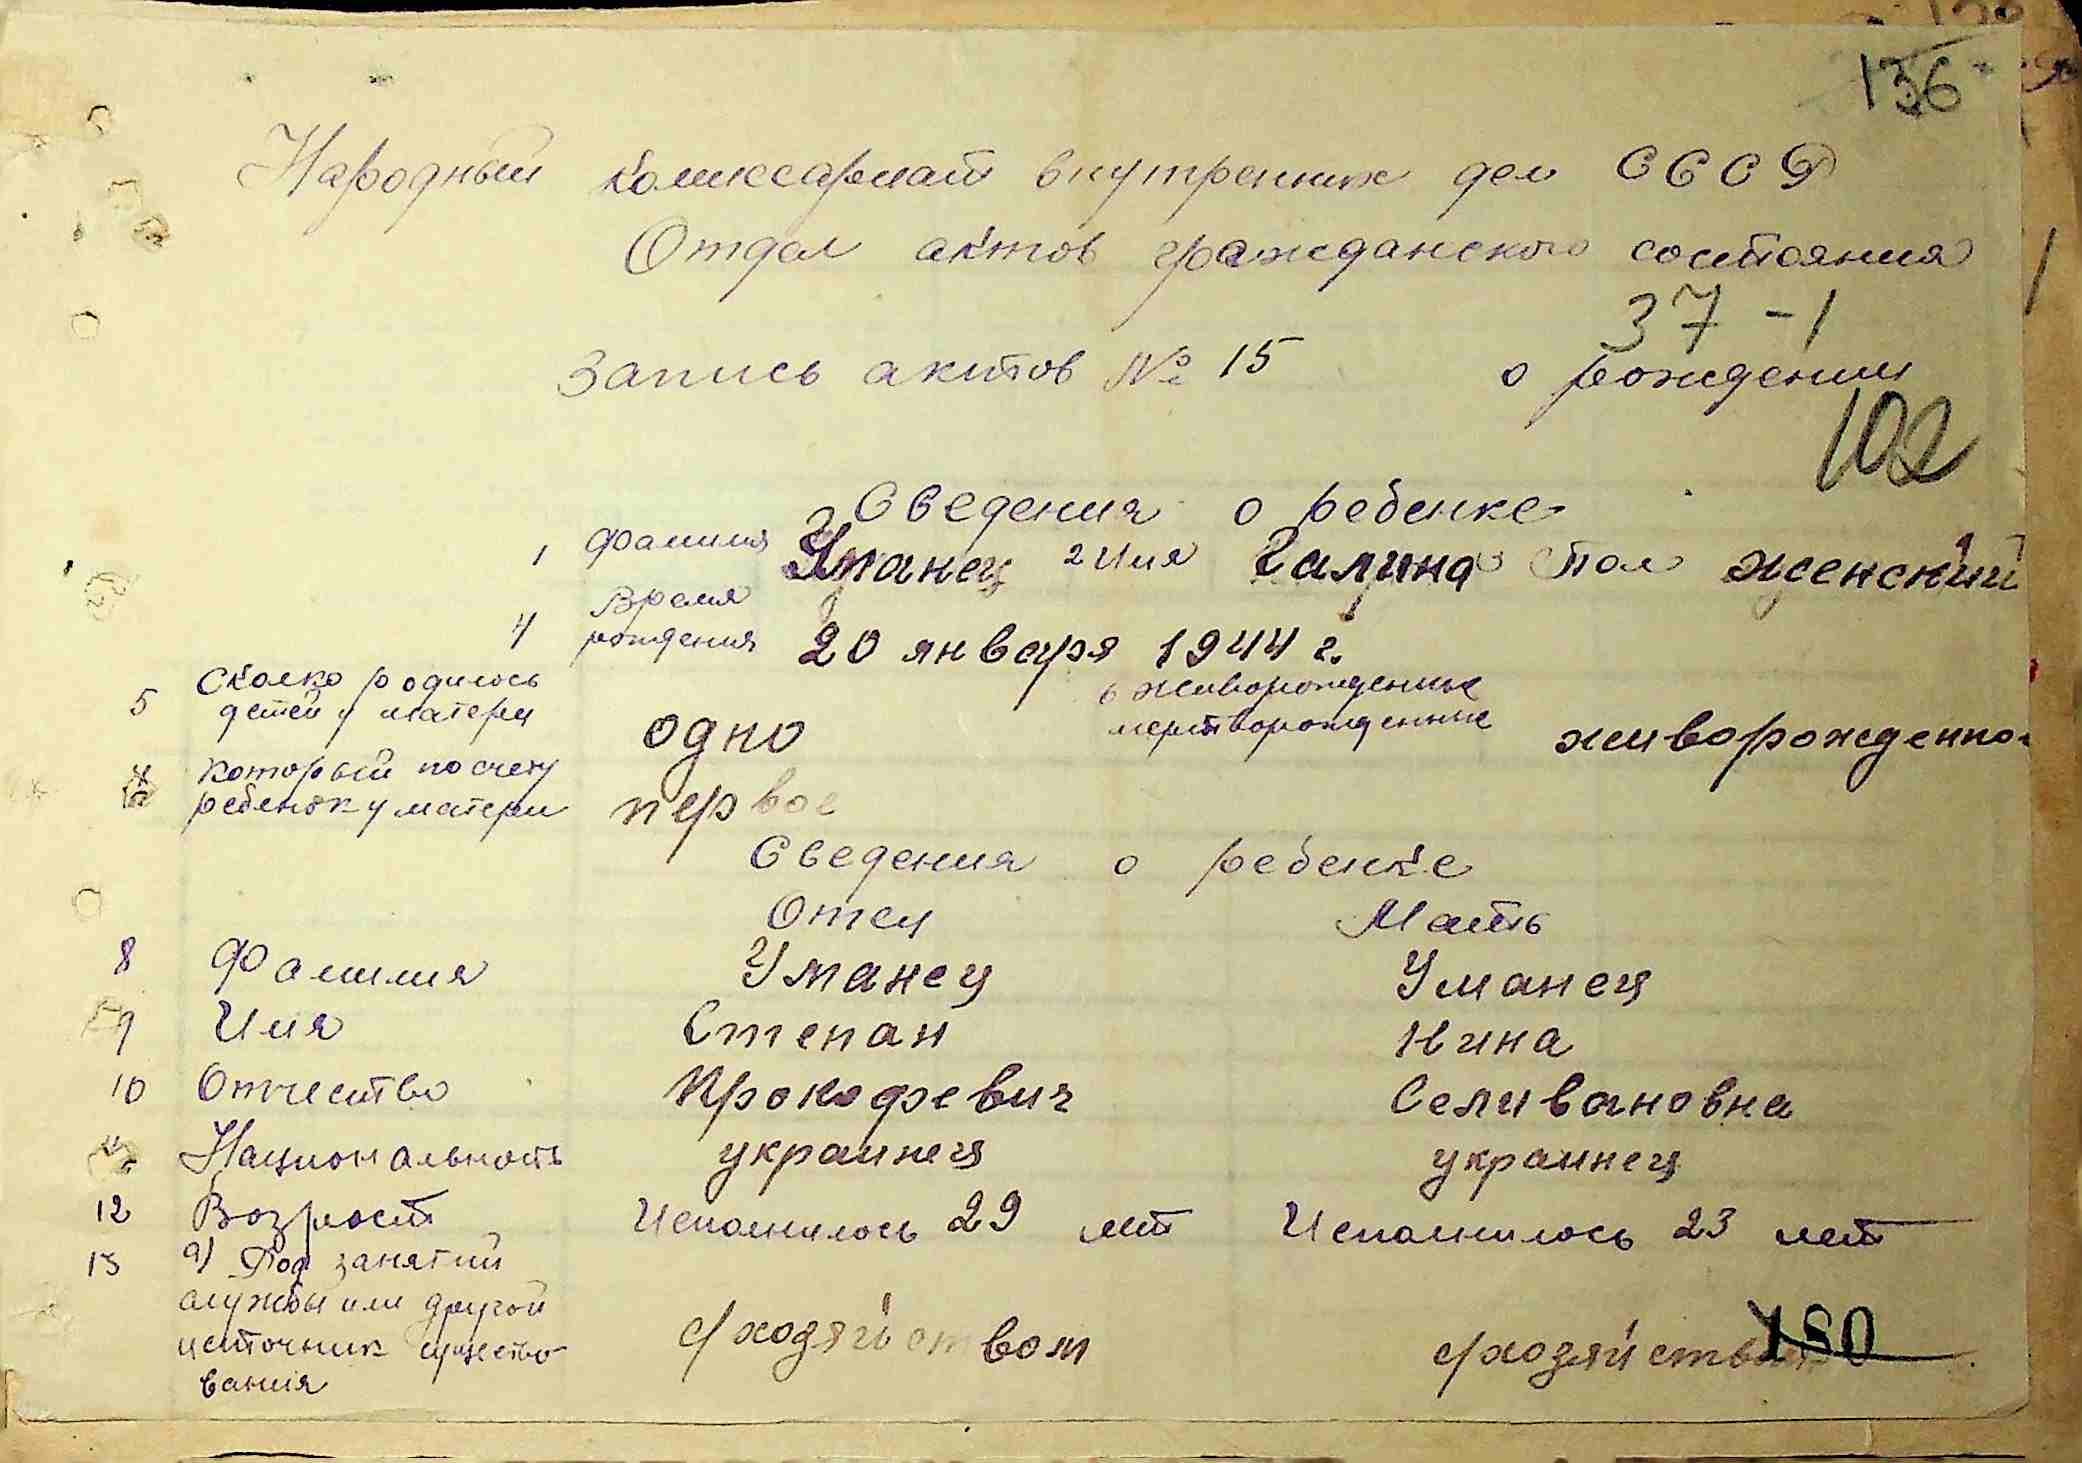 136
Народный комиссариат внутренних дел СССР
Отдел актов гражданского состояния
37-1
Запись актов № 15 о рождении
102
Сведения о ребенке
1 Фамилия Уманец 2 Имя Галина 3 Пол женский
4 Время рождения 20 января 1944 г.
5 Сколко родилось детей у матери одно 6 живорожденные мертворожденные живорожденно
который по счету ребенок у матери первое
Сведения о ребенке
Отец Мать
8 Фамилия Уманец Уманец
9 Имя Степан Нина
10 Отчество Прокофевич Селивановна
Национальность украинец украинец
12 Возраст Исполнилось 29 лет Исполнилось 23 лет
13 а) Род занятий
службы или другой
источник существо-
вания с/хозяйством с/хозяйством
180